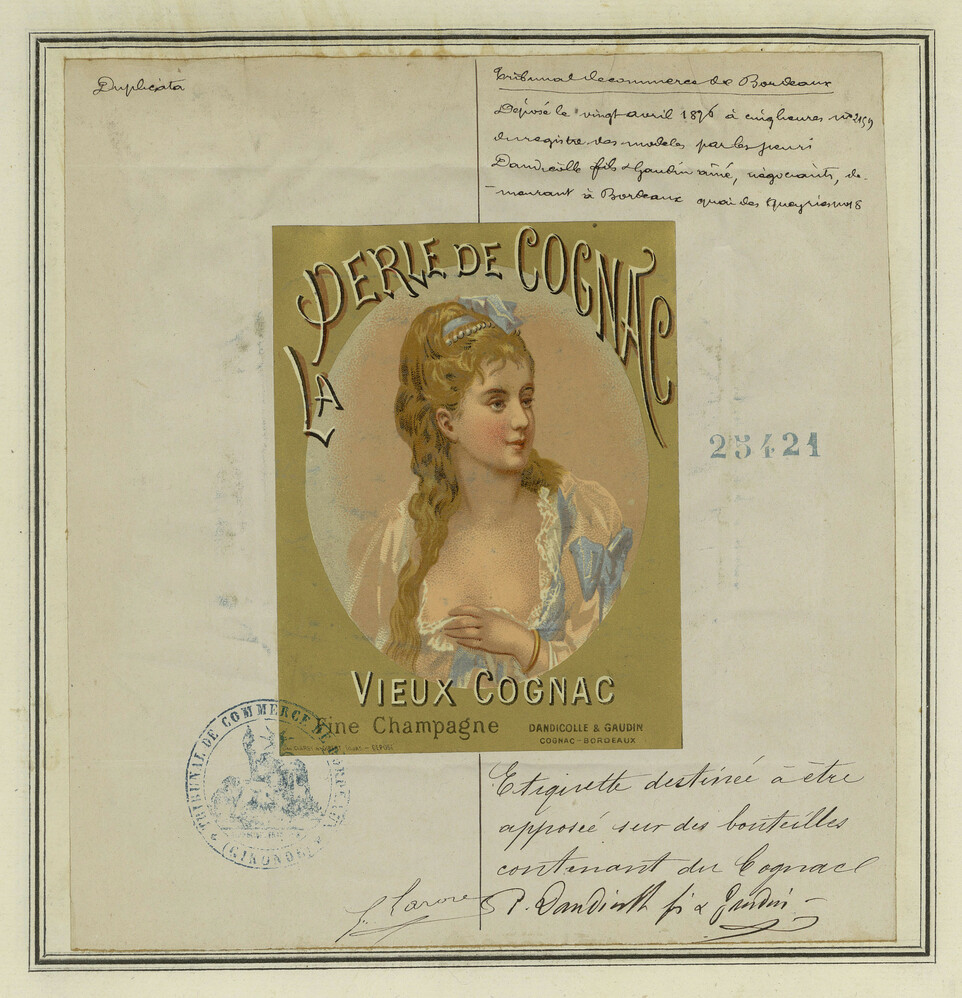 Duplicata
Tribunal de commerce de Bordeaux
Déposé le vingt avril 1876 à cinq heures no 2159
du registre des modèles par les sieurs
Dandicolle fils & Gaudin ainé, négociants, de-
-meurant à Bordeaux quai des Queyries no 18
LA PERLE DE COGNAC
25421
VIEUX COGNAC
Fine Champagne
DANDICOLLE & GAUDIN
COGNAC - BORDEAUX
TRIBUNAL DE COMMERCE DE BORDEAUX
(GIRONDE)
Etiquette destinée à être
apposée sur des bouteilles
contenant du Cognac
P. Dandicolle fs & Gaudin